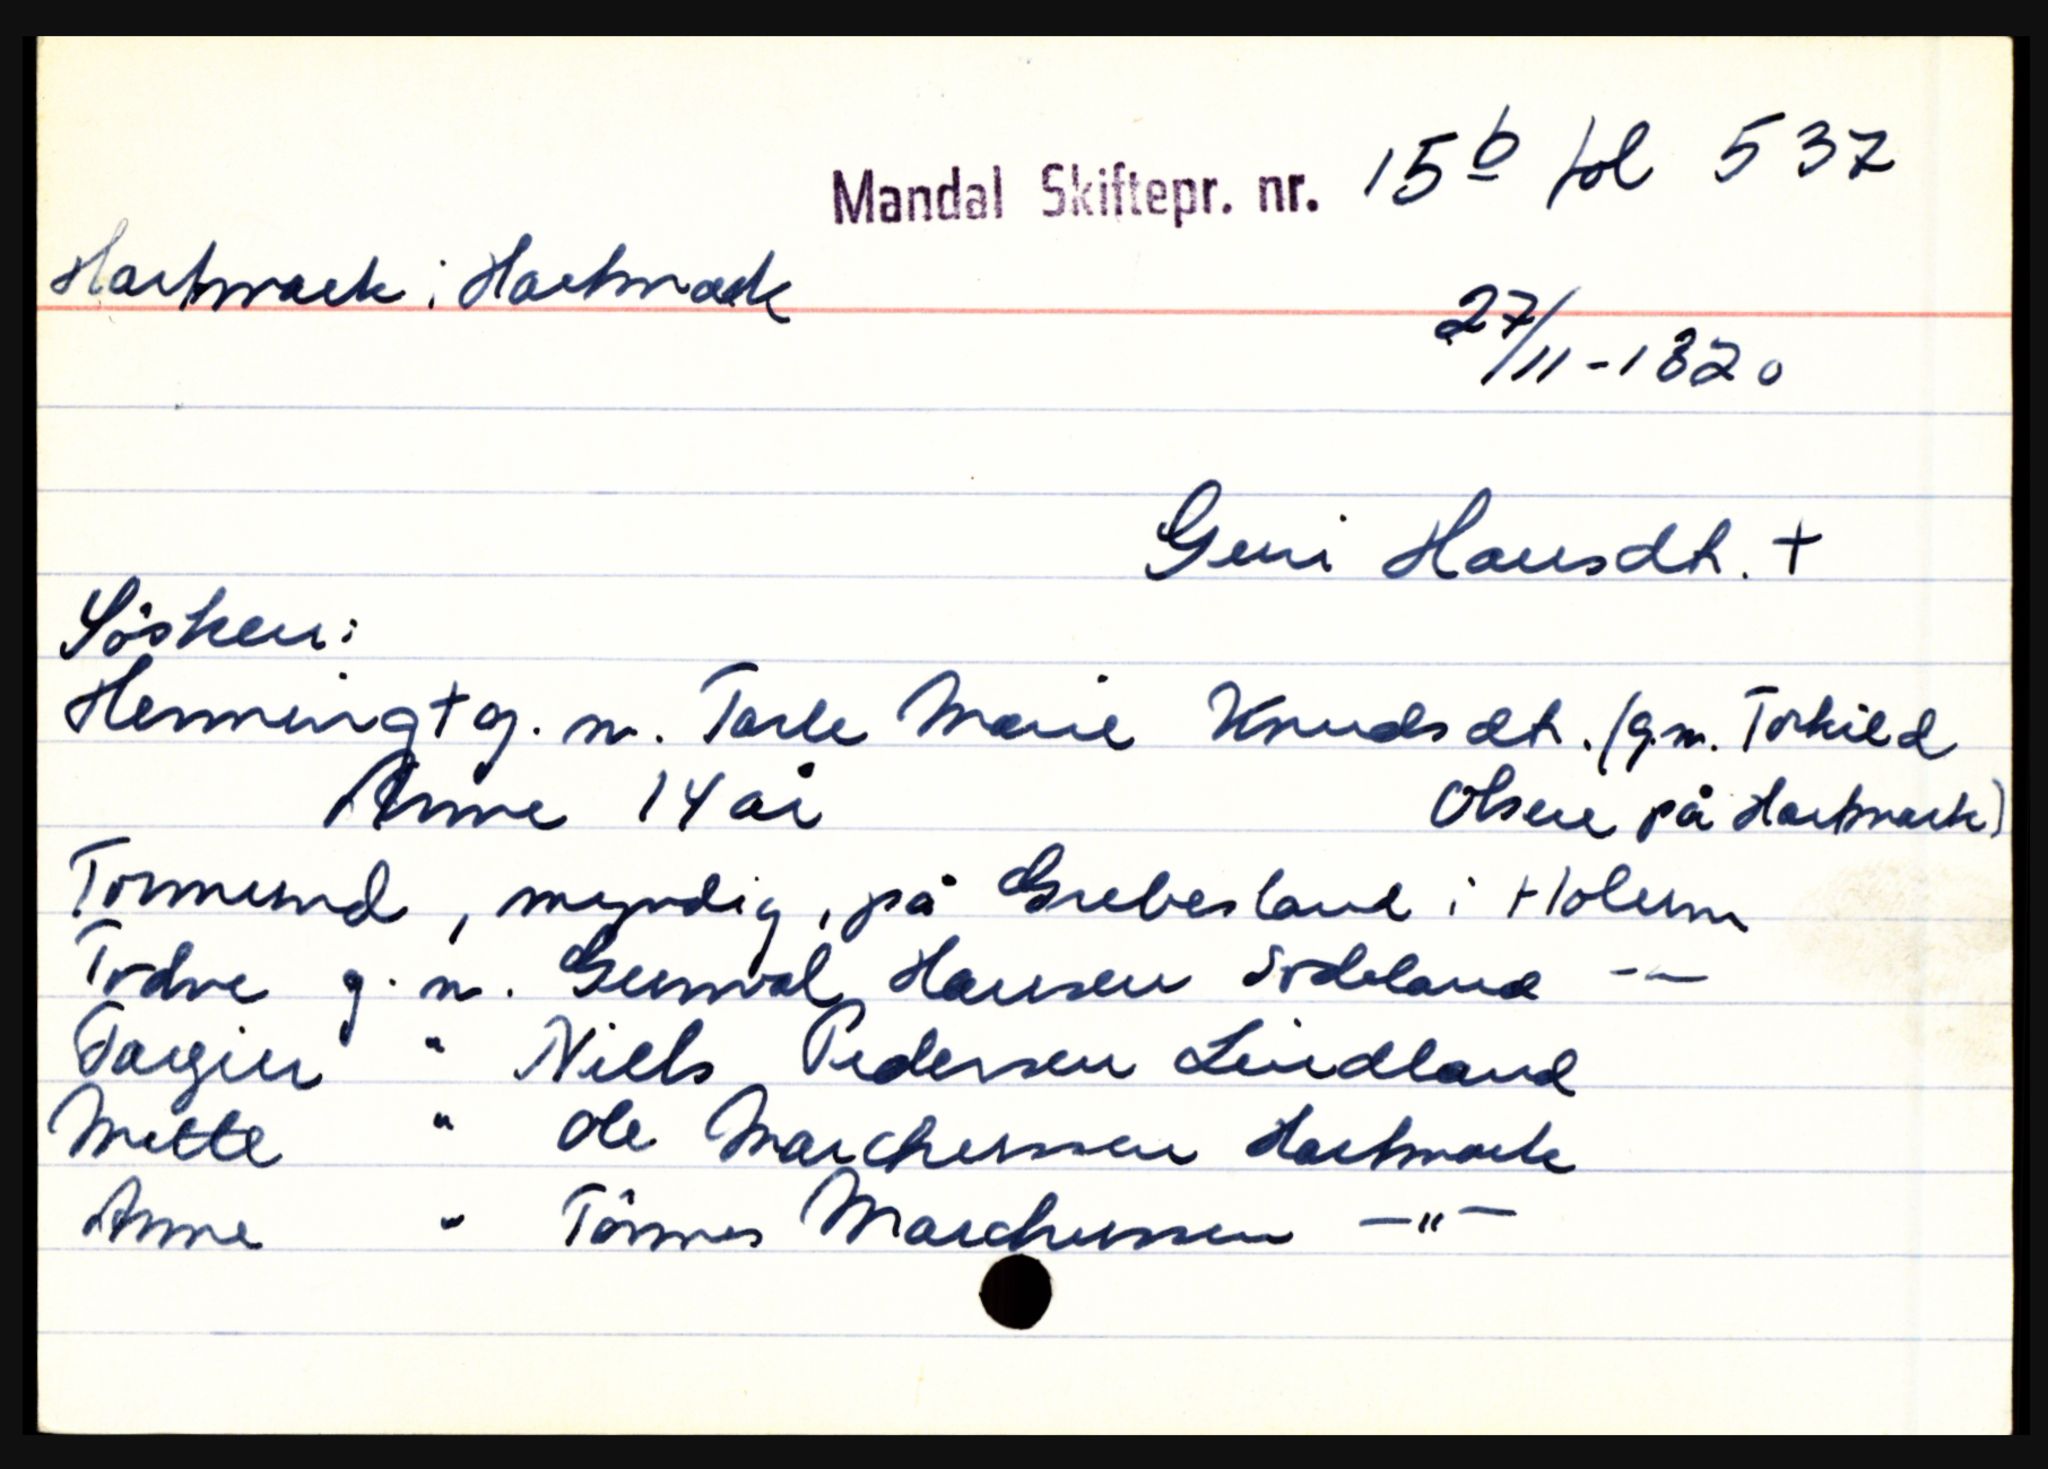 Mandal Skiftepr. nr. 15b fol 537
Hartmark i Hartmark
27/11-1820
Geri Hansdt. +
Søsken:
Henning + g. m. Tarle Marie Knudsdt. (g.m. Torkild
Anne 14 år Olsen på Hartmark)
Tormund, myndig, på Grebesland i Holum
Todne g. m. Gunval Hansen Sodeland -"-
Targier " Niels Pedersen Lindland
Mette " Ole Marcheussen Hartmark
Anne " Tönnes Marcheussen -"-